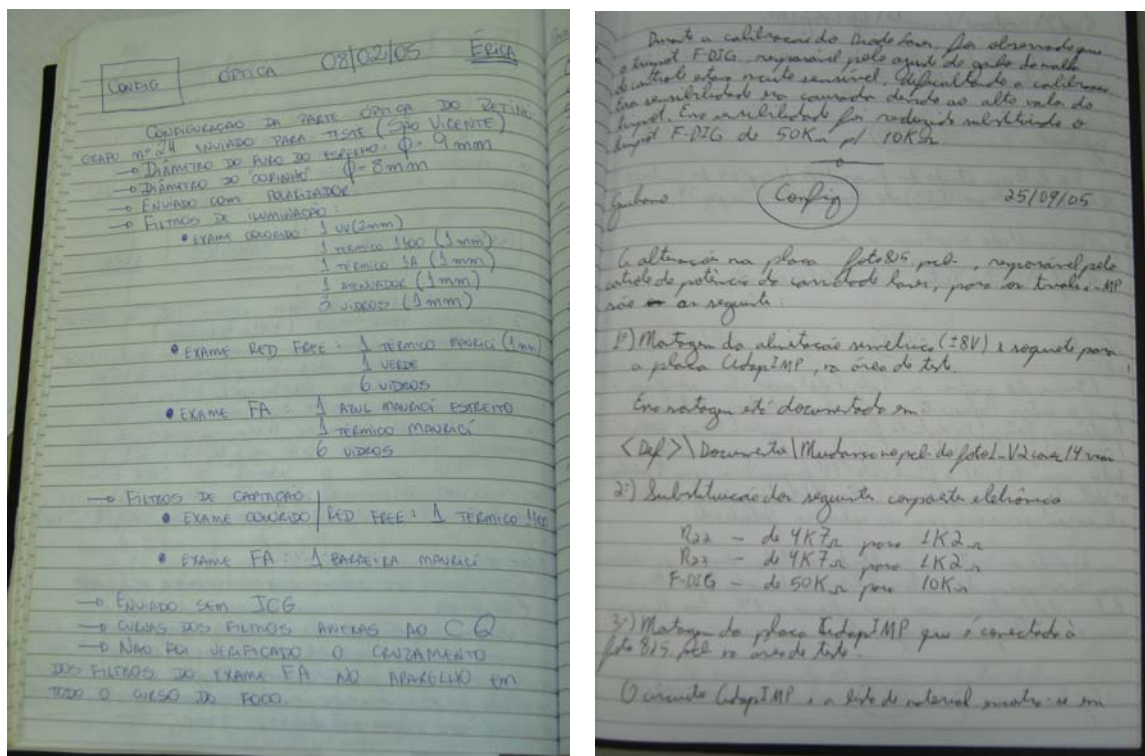 CONFIG ÓPTICA 08/02/05 ÉRICA
CONFIGURAÇÃO DA PARTE ÓPTICA DO RETINÓ
GRAFO nº 24 ENVIADO PARA TESTE (SÃO VICENTE)
→ DIÂMETRO DO FURO DO ESPELHO: ϕ = 9 mm
→ DIÂMETRO DO "COPINHO": ϕ = 8 mm
→ ENVIADO COM POLARIZADOR
→ FILTROS DE ILUMINAÇÃO:
• EXAME COLORIDO: 1 UV (2mm)
1 TÉRMICO 1100 (1mm)
1 TÉRMICO 1A (1mm)
1 ATENUADOR (1mm)
3 VIDROS (1mm)
• EXAME RED FREE: 1 TÉRMICO MAURICI (1mm)
1 VERDE
6 VIDROS
• EXAME FA: 1 AZUL MAURICI ESTREITO
1 TÉRMICO MAURICI
6 VIDROS
→ FILTROS DE CAPTAÇÃO
• EXAME COLORIDO / RED FREE: 1 TÉRMICO 1100
• EXAME FA: 1 BARREIRA MAURICI
→ ENVIADO SEM JCG
→ CURVAS DOS FILTROS ANEXAS AO CQ
→ NÃO FOI VERIFICADO O CRUZAMENTO
DOS FILTROS DO EXAME FA NO APARELHO EM
TODO O CURSO DO FOCO.
Durante a calibração do Diodo Laser, foi observado que
o trimpot F-DIG, responsável pelo ajuste do ganho da malha
de controle estava muito sensível, dificultando a calibração.
Essa sensibilidade era causada devido ao alto valor do
trimpot. Essa sensibilidade foi reduzida substituindo o
trimpot F-DIG de 50KΩ p/ 10KΩ.
Config 25/09/05
A alteração na placa foto815.pcb, responsável pelo
controle de potência do laser, para os
são as seguintes
1º) Montagem da alimentação simétrica (±8V) e soquete para
a placa AdapIMP, na área de teste.
Essa montagem está documentada em:
<Def>\Documenta\Mudança no pcb do foto
2º) Substituição dos seguintes eletrônicos
R22 - de 4K7Ω para 1K2Ω
R23 - de 4K7Ω para 1K2Ω
F-DIG - de 50KΩ para 10KΩ
3º) Montagem da placa AdapIMP que é conectada à
foto 815.pcb na área de teste.
O circuito AdapIMP e a lista de material encontra-se em